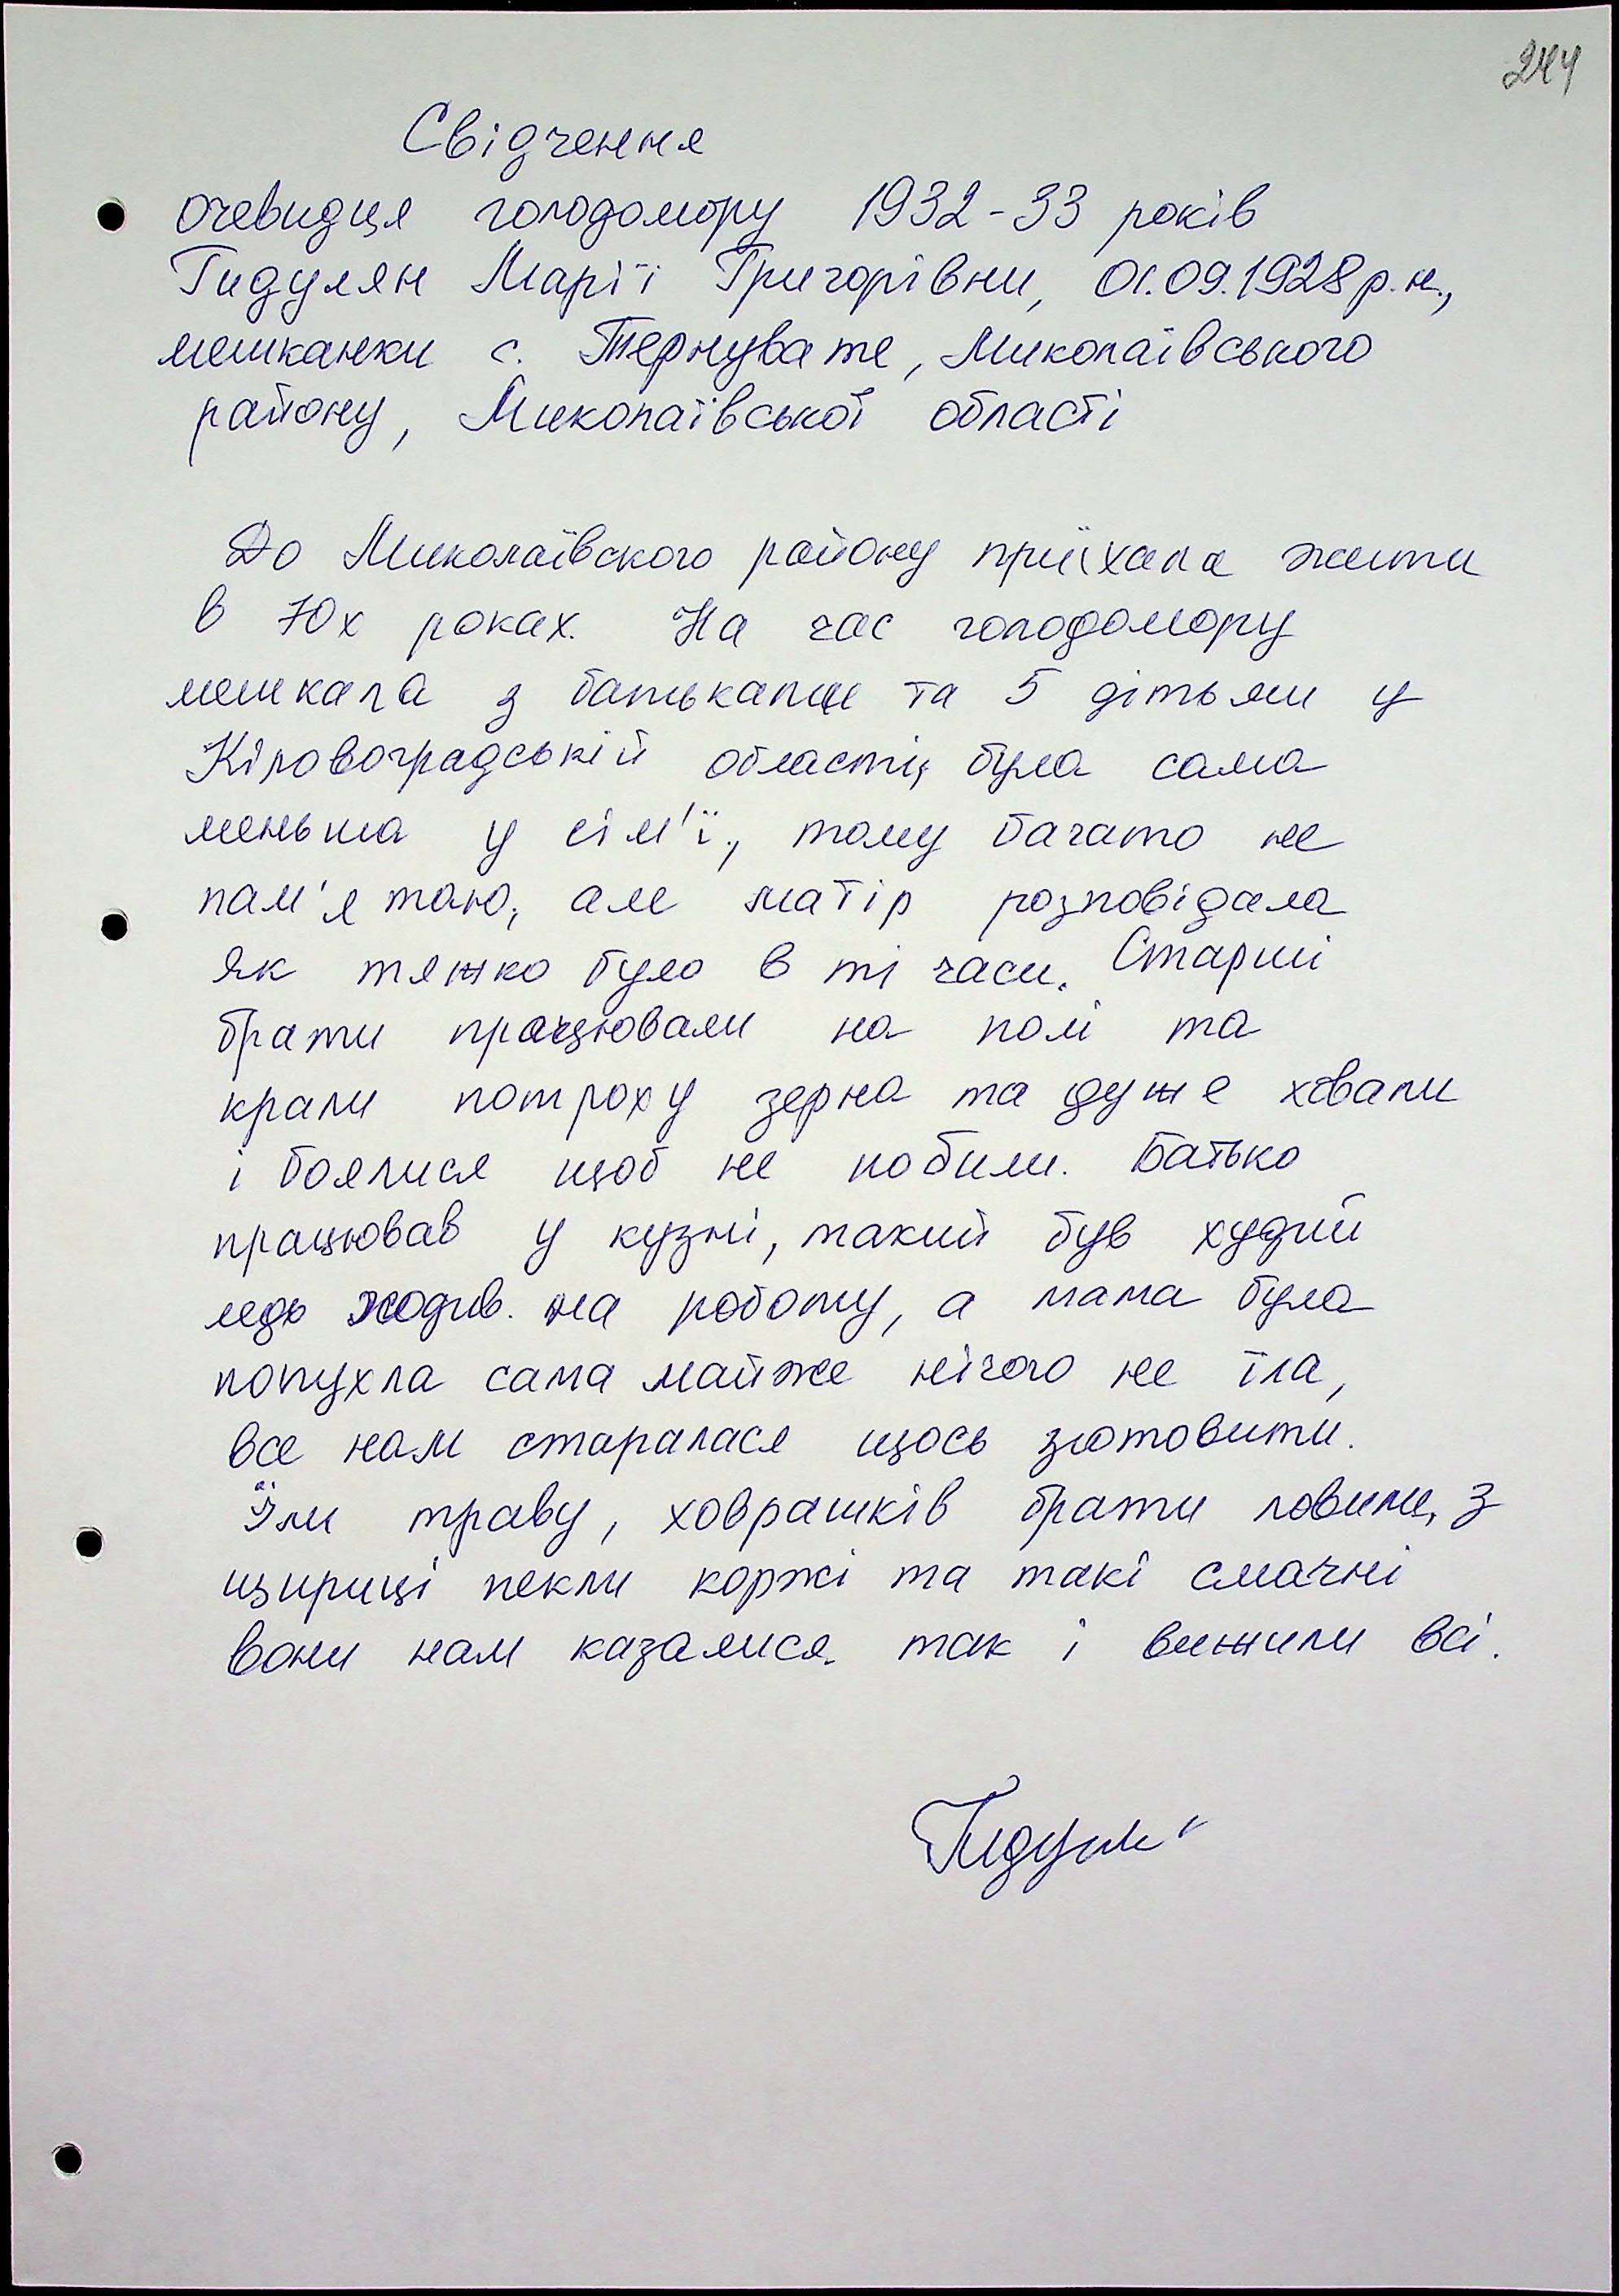 244
Свідчення
очевидця голодомору 1932-33 років
Гидулян Марії Григорівни, 01.09.1928 р.н.,
мешканки с. Тернувате, Миколаївського
району, Миколаївської області
До Миколаївского району приїхала жити
в 70х роках. На час голодомору
мешкала з батьками та 5 дітьми у
Кіровоградській області, була сама
меньша у сім'ї, тому багато не
пам'ятаю, але матір розповідала
як тяжко було в ті часи. Старші
брати працювали на полі та
крали потроху зерна та дуже ховали
і боялися щоб не побили. Батько
працював у кузні, такий був худий
ледь ходив на роботу, а мама була
попухла сама майже нічого не їла,
все нам старалася щось зготовити.
Їли траву, ховрашків брати ловили, з
щириці пекли коржі та такі смачні
вони нам казалися. так і вижили всі.